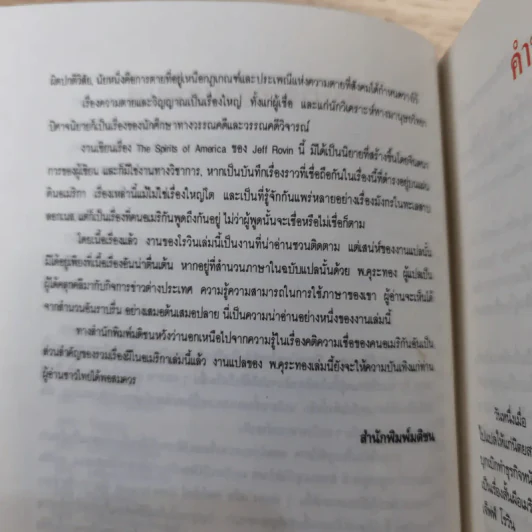 ผิดปกติวิสัย, นัยหนึ่งคือการตายที่อยู่เหนือกฎเกณฑ์และประเพณีแห่งความตายที่สังคมได้กำหนดวางไว้
เรื่องความตายและวิญญาณเป็นเรื่องใหญ่ ทั้งแก่ผู้เชื่อ และแก่นักวิเคราะห์ทางมานุษยวิทยา
ปิศาจนิยายก็เป็นเรื่องของนักศึกษาทางวรรณคดีและวรรณคดีวิจารณ์
งานเขียนเรื่อง The Spirits of America ของ Jeff Rovin นี้ มิได้เป็นนิยายที่สร้างขึ้นโดยจินตนา
การของผู้เขียน และก็มิใช่งานทางวิชาการ, หากเป็นบันทึกเรื่องราวที่เชื่อถือกันในเรื่องนี้ที่ดำรงอยู่บนแผ่น
ดินอเมริกา เรื่องเหล่านี้แม้ไม่ใช่เรื่องใหญ่โต และเป็นที่รู้จักกันแพร่หลายอย่างเรื่องมังกรในทะเลสาบ
ลอกเนส, แต่ก็เป็นเรื่องที่คนอเมริกันพูดถึงกันอยู่ ไม่ว่าผู้พูดนั้นจะเชื่อหรือไม่เชื่อก็ตาม
โดยเนื้อเรื่องแล้ว งานของโรวินเล่มนี้เป็นงานที่น่าอ่านชวนติดตาม แต่เสน่ห์ของงานแปลนั้น
มิได้อยู่เพียงที่เนื้อเรื่องอันน่าตื่นเต้น หากอยู่ที่สำนวนภาษาในฉบับแปลนั้นด้วย พ.ศุระทอง ผู้แปลเป็น
ผู้ได้คลุกคลีมากับกิจการข่าวต่างประเทศ ความรู้ความสามารถในการใช้ภาษาของเขา ผู้อ่านจะเห็นได้
จากสำนวนอันราบรื่น อย่างเสมอต้นเสมอปลาย นี่เป็นความน่าอ่านอย่างหนึ่งของงานเล่มนี้
ทางสำนักพิมพ์มติชนหวังว่านอกเหนือไปจากความรู้ในเรื่องคติความเชื่อของคนอเมริกันอันเป็น
ส่วนสำคัญของรวมเรื่องผีในอเมริกาเล่มนี้แล้ว งานแปลของ พ.ศุระทองเล่มนี้ยังจะให้ความบันเทิงแก่ท่าน
ผู้อ่านชาวไทยได้พอสมควร
สำนักพิมพ์มติชน
คำ
วันหนึ่งเมื่อ